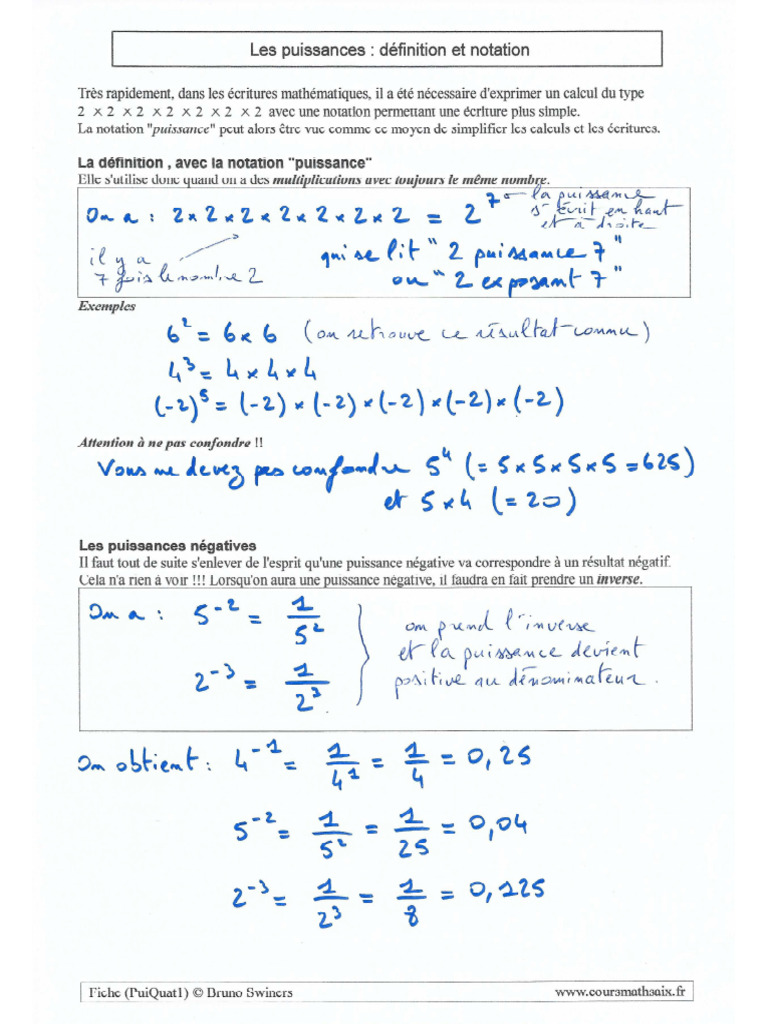 Les puissances : définition et notation
Très rapidement, dans les écritures mathématiques, il a été nécessaire d'exprimer un calcul du type
2 × 2 × 2 × 2 × 2 × 2 × 2 avec une notation permettant une écriture plus simple.
La notation "puissance" peut alors être vue comme ce moyen de simplifier les calculs et les écritures.
La définition , avec la notation "puissance"
Elle s'utilise donc quand on a des multiplications avec toujours le même nombre.
On a : 2×2×2×2×2×2×2 = 2⁷ la puissance
s'écrit en haut
et à droite
il y a
7 fois le nombre 2
qui se lit " 2 puissance 7 "
ou " 2 exposant 7 "
Exemples
6² = 6×6 (on retrouve ce résultat connu)
4³ = 4×4×4
(-2)⁵ = (-2) × (-2) × (-2) × (-2) × (-2)
Attention à ne pas confondre !!
Vous ne devez pas confondre 5⁴ (= 5×5×5×5 = 625)
et 5×4 (= 20)
Les puissances négatives
Il faut tout de suite s'enlever de l'esprit qu'une puissance négative va correspondre à un résultat négatif.
Cela n'a rien à voir !!! Lorsqu'on aura une puissance négative, il faudra en fait prendre un inverse.
On a : 5⁻² = 1/5²
2⁻³ = 1/2³
on prend l'inverse
et la puissance devient
positive au dénominateur.
On obtient : 4⁻¹ = 1/4¹ = 1/4 = 0,25
5⁻² = 1/5² = 1/25 = 0,04
2⁻³ = 1/2³ = 1/8 = 0,125
Fiche (PuiQuat1) © Bruno Swiners
www.coursmathsaix.fr